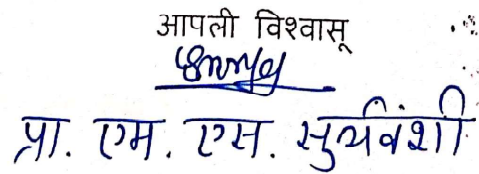 आपली विश्वासू
प्रा. एम. एस. सुर्यवंशी